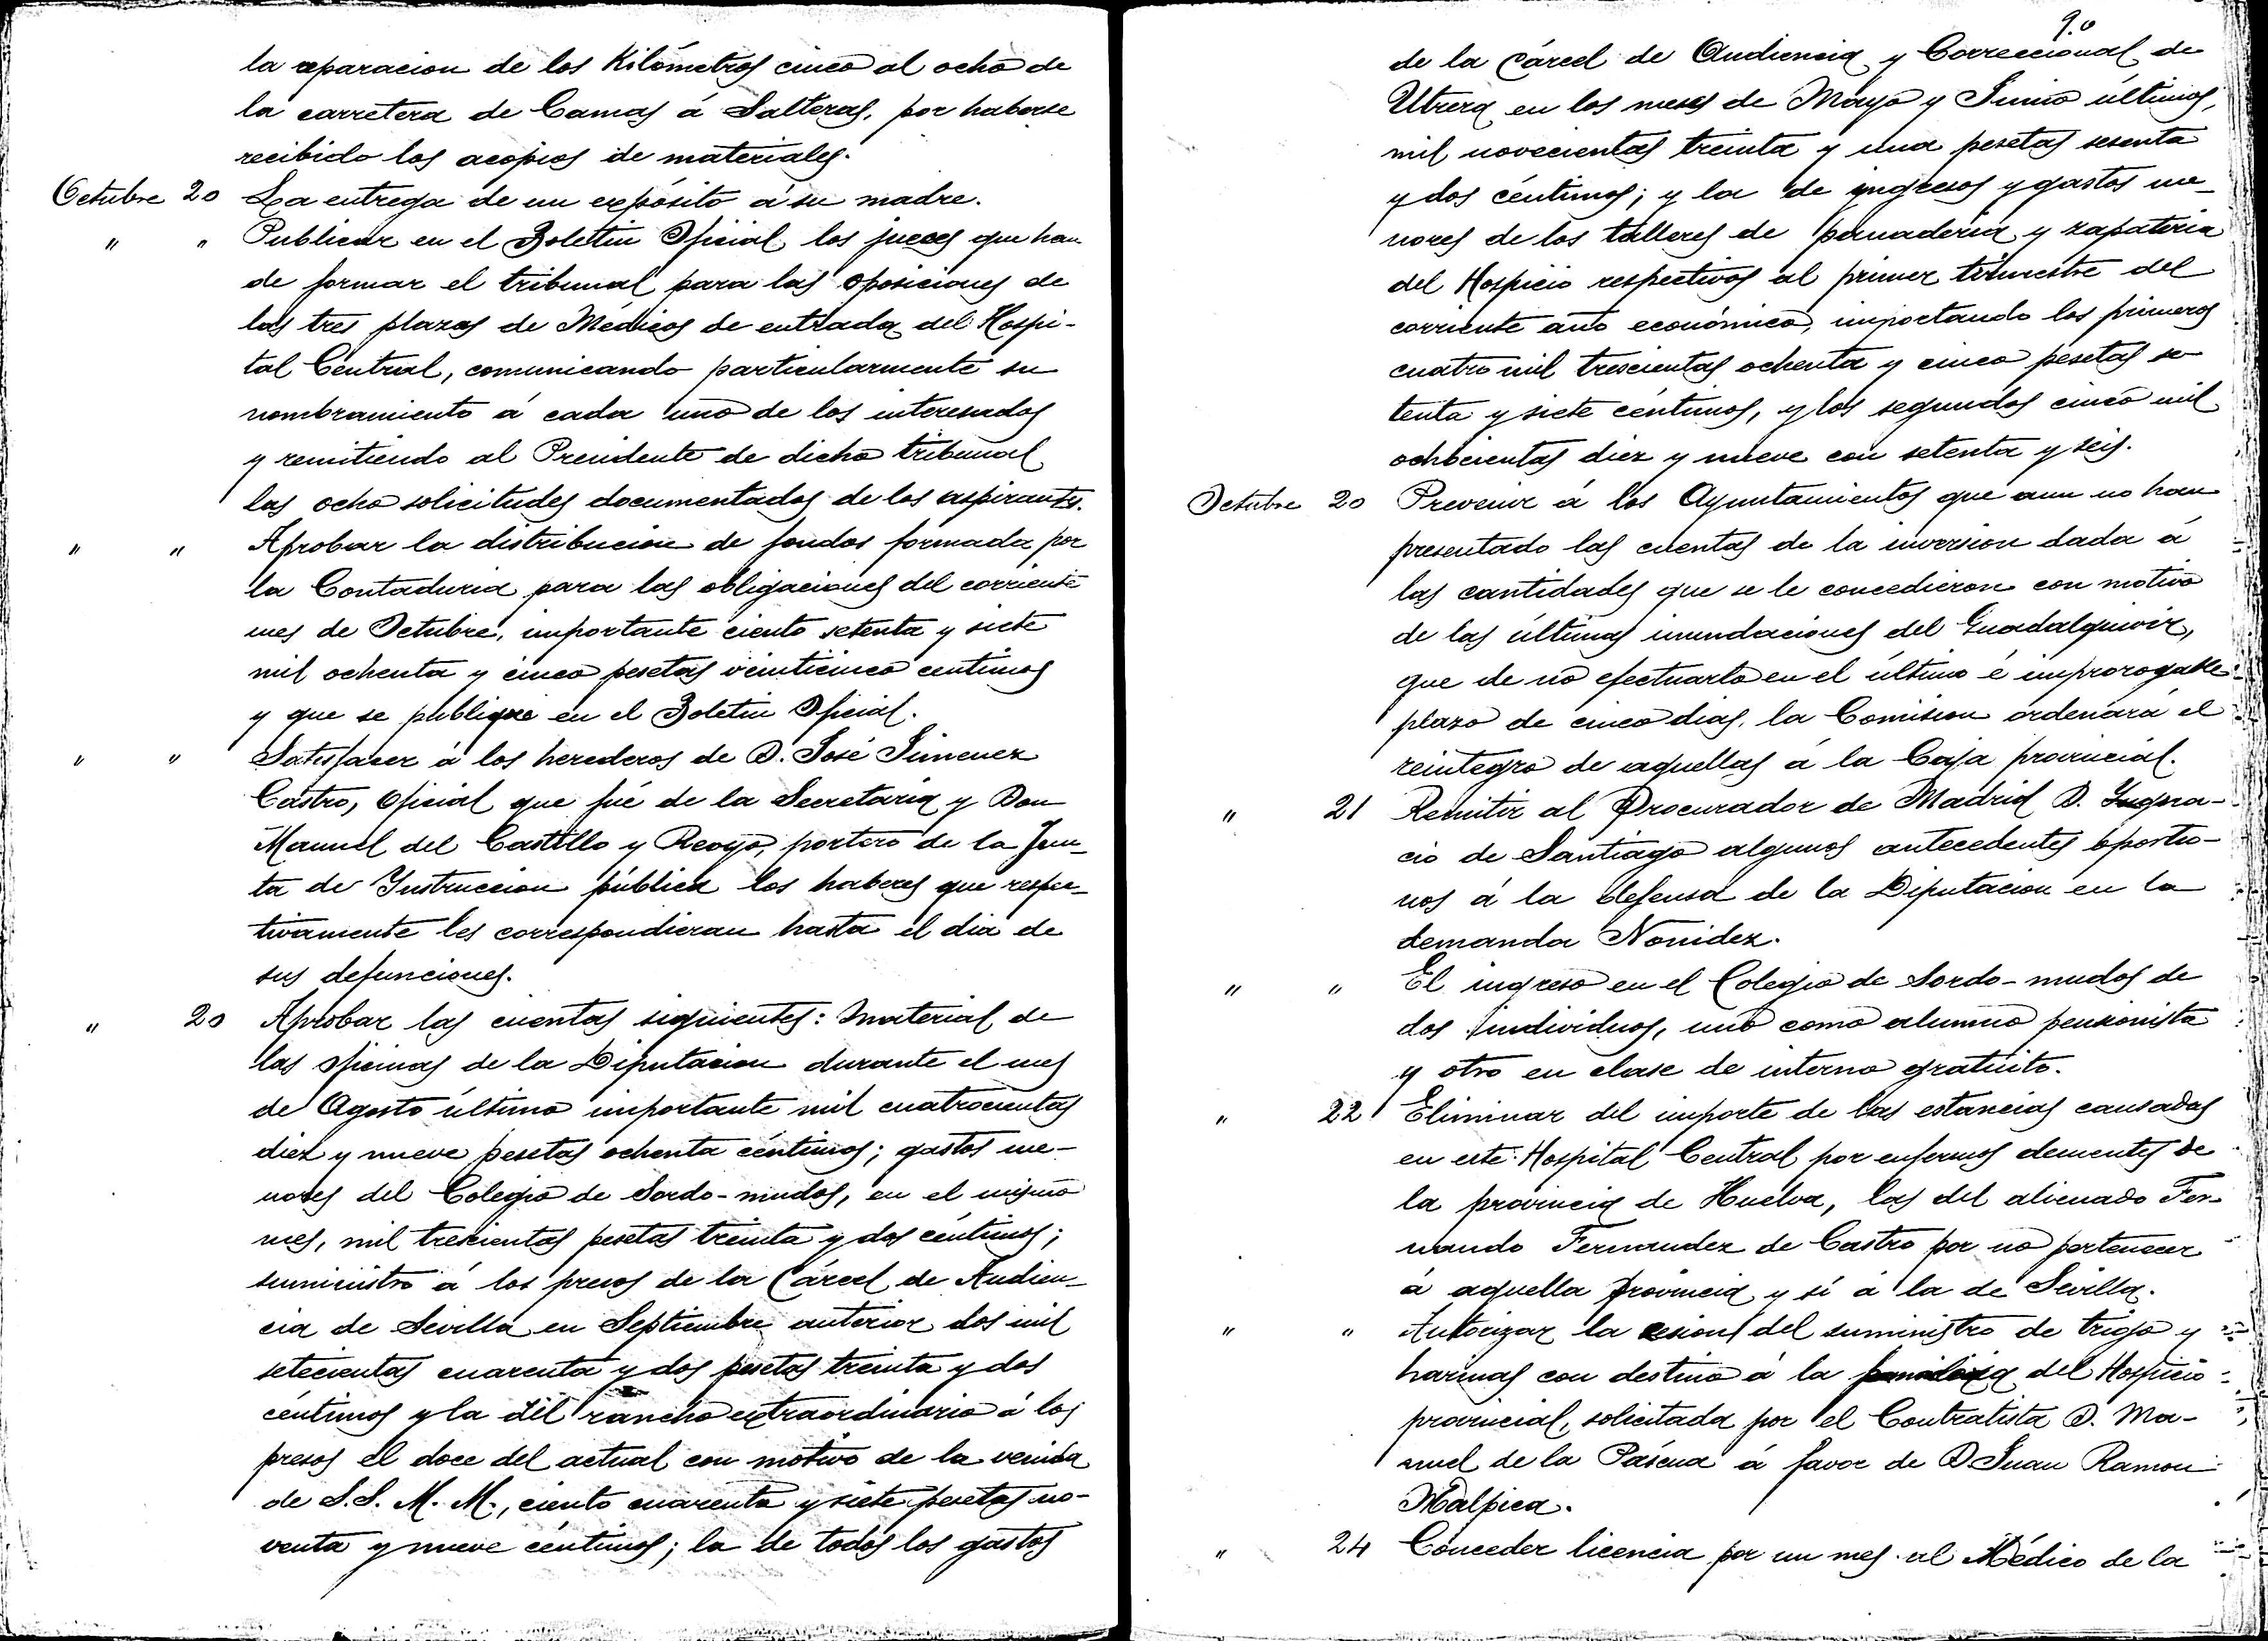 la reparacion de los Kilómetros cinco al ocho de
la carretera de Camas á Salteras, por haberse
recibido los acopios de materiales.
Octubre 20 La entrega de un expósito á su madre.
" " Publicar en el Boletin Oficial los jueces que han
de formar el tribunal para las oposiciones de
las tres plazas de Médicos de entrada del Hospi-
tal Central, comunicando particularmente su
nombramiento á cada uno de los interesados
y remitiendo al Presidente de dicho tribunal
las ocho solicitudes documentadas de los aspirantes.
" " Aprobar la distribucion de fondos formada por
la Contaduria para las obligaciones del corriente
mes de Octubre, importante ciento setenta y siete
mil ochenta y cinco pesetas veinticinco centimos
y que se publique en el Boletin Oficial.
" " Satisfacer á los herederos de D. José Jimenez
Castro, Oficial que fué de la Secretaria y Don
Manuel del Castillo y Reoyo, portero de la Jun-
ta de Instruccion pública los haberes que respec-
tivamente les correspondieran hasta el dia de
sus defunciones.
" 20 Aprobar las cuentas siguientes: Material de
las oficinas de la Diputacion durante el mes
de Agosto último importante mil cuatrocientas
diez y nueve pesetas ochenta céntimos; gastos me-
nores del Colegio de Sordo-mudos, en el mismo
mes, mil trescientas pesetas treinta y dos céntimos;
suministro á los presos de la Cárcel de Audien-
cia de Sevilla en Septiembre anterior dos mil
setecientas cuarenta y dos pesetas treinta y dos
céntimos y la del rancho extraordinario á los
presos el doce del actual con motivo de la venida
de S.S. M. M., ciento cuarenta y siete pesetas no-
venta y nueve céntimos; la de todos los gastos
90
de la Cárcel de Audiencia y Correccional de
Utrera en los meses de Mayo y Junio últimos,
mil novecientas treinta y una pesetas sesenta
y dos céntimos; y la de ingresos y gastos me-
nores de los talleres de panaderia y zapateria
del Hospicio respectivos al primer trimestre del
corriente año económico, importando los primeros
cuatro mil trescientas ochenta y cinco pesetas se-
tenta y siete céntimos, y los segundos cinco mil
ochocientas diez y nueve con setenta y seis.
Octubre 20 Prevenir á los Ayuntamientos que aun no han
presentado las cuentas de la inversion dada á
las cantidades que se le concedieron con motivo
de las últimas inundaciones del Guadalquivir,
que de no efectuarlo en el último é improrogable
plazo de cinco dias, la Comision ordenará el
reintegro de aquellas á la Caja provincial.
" 21 Remitir al Procurador de Madrid D. Ygna-
cio de Santiago algunos antecedentes oportu-
nos á la defensa de la Diputacion en la
demanda Nonidez.
" " El ingreso en el Colegio de Sordo-mudos de
dos individuos, uno como alumno pensionista
y otro en clase de interno gratuito.
" 22 Eliminar del importe de las estancias causadas
en este Hospital Central por enfermos dementes de
la provincia de Huelva, las del alienado Fer-
nando Fernandez de Castro por no pertenecer
á aquella provincia y sí á la de Sevilla.
" " Autorizar la cesion del suministro de trigo y
harinas con destino á la panaderia del Hospicio
provincial, solicitada por el Contratista D. Ma-
nuel de la Páscua á favor de D. Juan Ramon
Malpica.
" 24 Conceder licencia por un mes al Médico de la